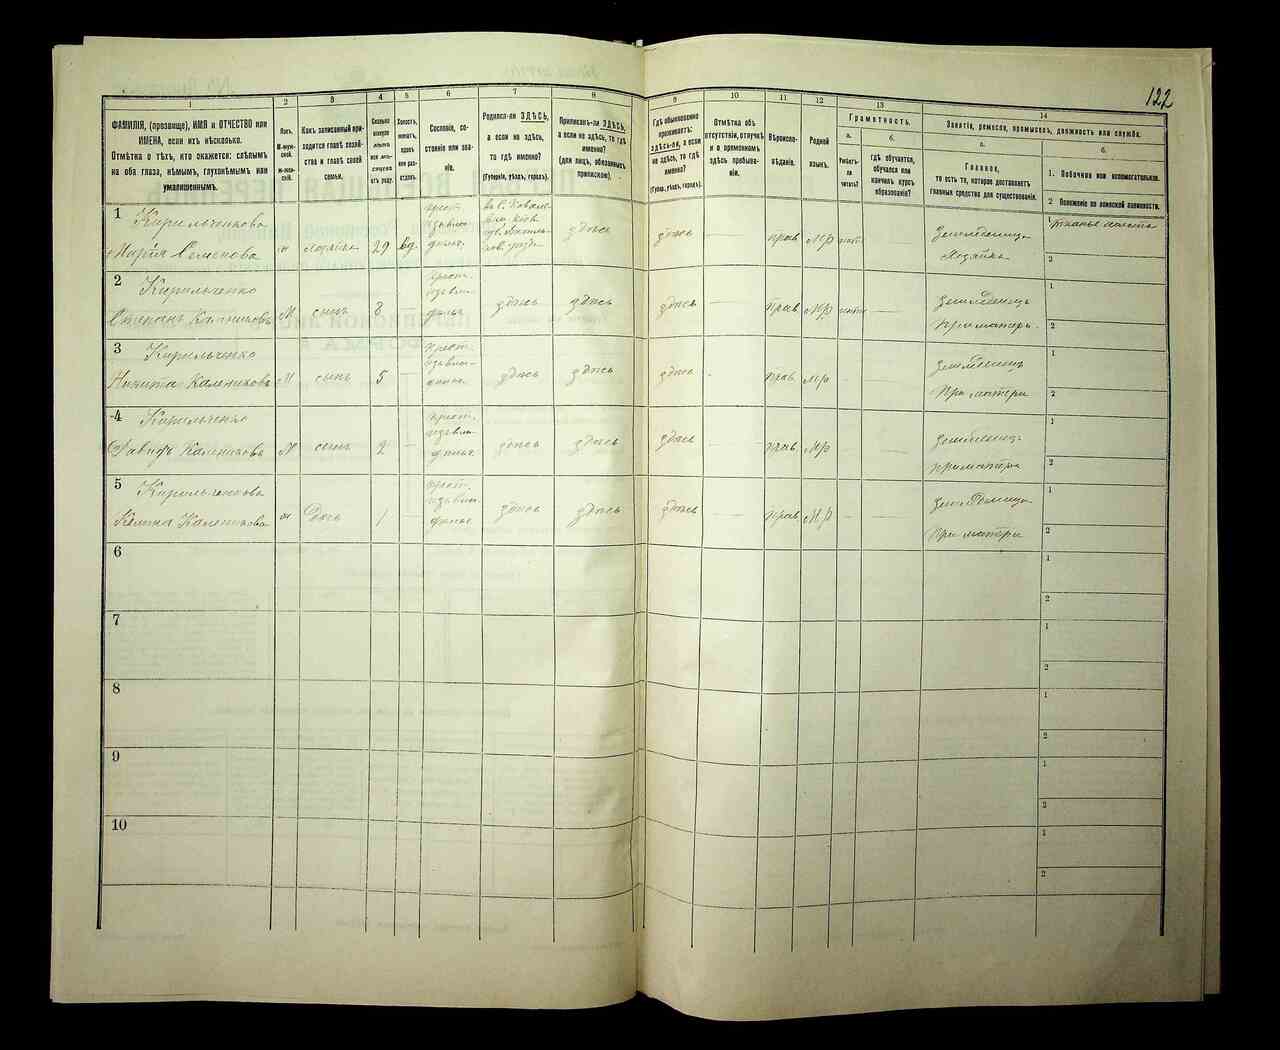 122
1
2
3
4
5
6
7
8
9
10
11
12
13
14
ФАМИЛІЯ, (прозвище), ИМЯ и ОТЧЕСТВО или
ИМЕНА, если ихъ нѣсколько.
Отмѣтка о тѣхъ, кто окажется: слѣпымъ
на оба глаза, нѣмымъ, глухонѣмымъ или
умалишеннымъ.
Полъ.
М-муж-
ской.
Ж-жен-
скій.
Какъ записанный при-
ходится главѣ хозяй-
ства и главѣ своей
семьи.
Сколько
минуло
лѣтъ
или мѣ-
сяцевъ
отъ роду.
Холостъ,
женатъ,
вдовъ
или раз-
веденъ.
Сословіе, со-
стояніе или зва-
ніе.
Родился-ли ЗДѢСЬ,
а если не здѣсь,
то гдѣ именно?
(Губернія, уѣздъ, городъ).
Приписанъ-ли ЗДѢСЬ,
а если не здѣсь, то гдѣ
именно?
(для лицъ, обязанныхъ
припискою).
Гдѣ обыкновенно
проживаетъ:
ЗДѢСЬ-ли, а если
не здѣсь, то гдѣ
именно?
(Губер., уѣздъ, городъ).
Отмѣтка объ
отсутствіи, отлучкѣ
и о временномъ
здѣсь пребыва-
ніи.
Вѣроиспо-
вѣданіе.
Родной
языкъ.
Грамотность.
а.
б.
Умѣетъ-
ли
читать?
гдѣ обучается,
обучался или
кончилъ курсъ
образованія?
Занятіе, ремесло, промыселъ, должность или служба.
а.
б.
Главное,
то есть то, которое доставляетъ
главныя средства для существованія.
1. Побочное или вспомогательное.
2 Положеніе по воинской повинности.
1 Кирильченкова
Марія Семенова ж хозяйка 29 вд. крест. здѣсь здѣсь — прав МР — Хозяйка
1
2
2 Кирильченко
Степанъ Калениковъ М сынъ 8 — крест. здѣсь здѣсь здѣсь — прав МР — При матери
1
2
3 Кирильченко
Никита Калениковъ М сынъ 5 — крест. здѣсь здѣсь здѣсь прав МР При матери
1
2
4 Кирильченко
Давидъ Калениковъ М сынъ 2 — крест. здѣсь здѣсь здѣсь — прав МР при матери
1
2
5 Кирильченкова
Каленикова ж Дочь 1 — крест. здѣсь здѣсь здѣсь — прав МР При матери
1
2
6
1
2
7
1
2
8
1
2
9
1
2
10
1
2